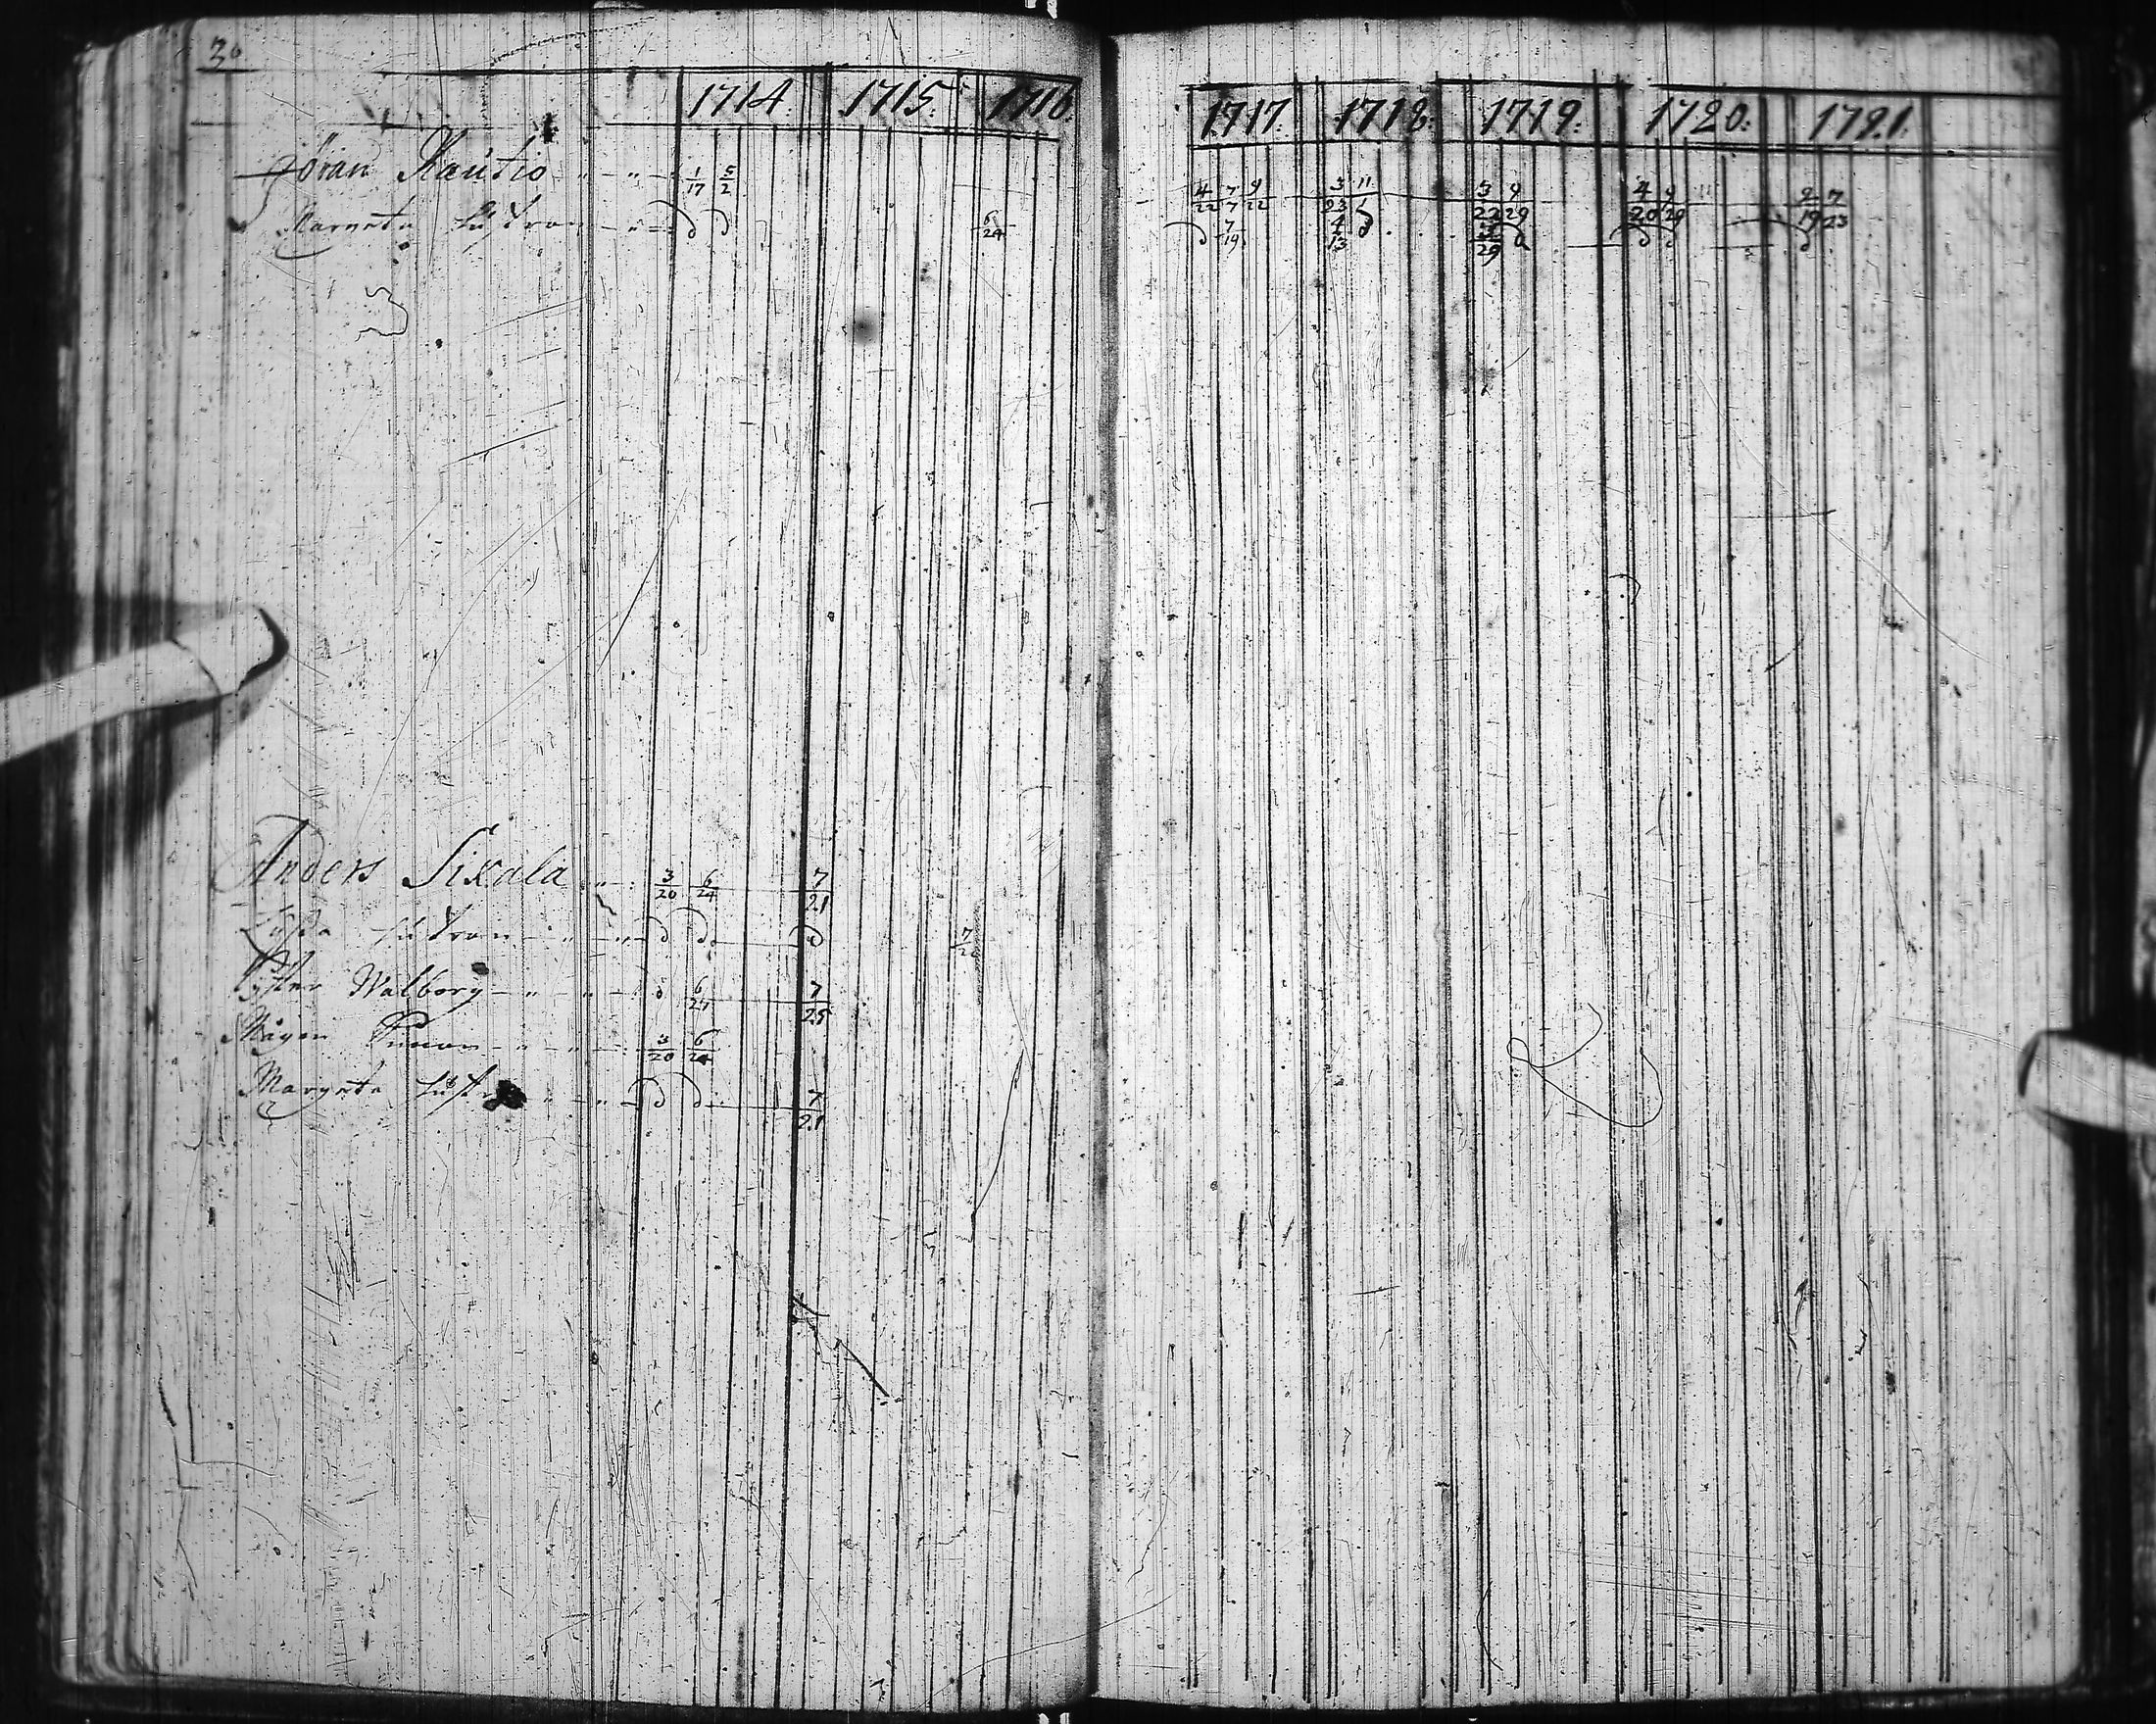 36
1714. 1715. 1716. 1717. 1718. 1719. 1720. 1721.
Jöran Rautio 1/17 5/2 4/22 7/7 9/22 3/23 11 3/22 9/29 4/20 9/29 2/19 7/23
Margreta hustrun d d 6/24 d 7/14 4/13 d 3/29 d d d d
Anders Sixala 3/20 6/24 7/21
hustrun d d d
Syster Walborg d 6/27 7/25
Mågen Simon 3/20 6/24
Margreta hust d d 7/21